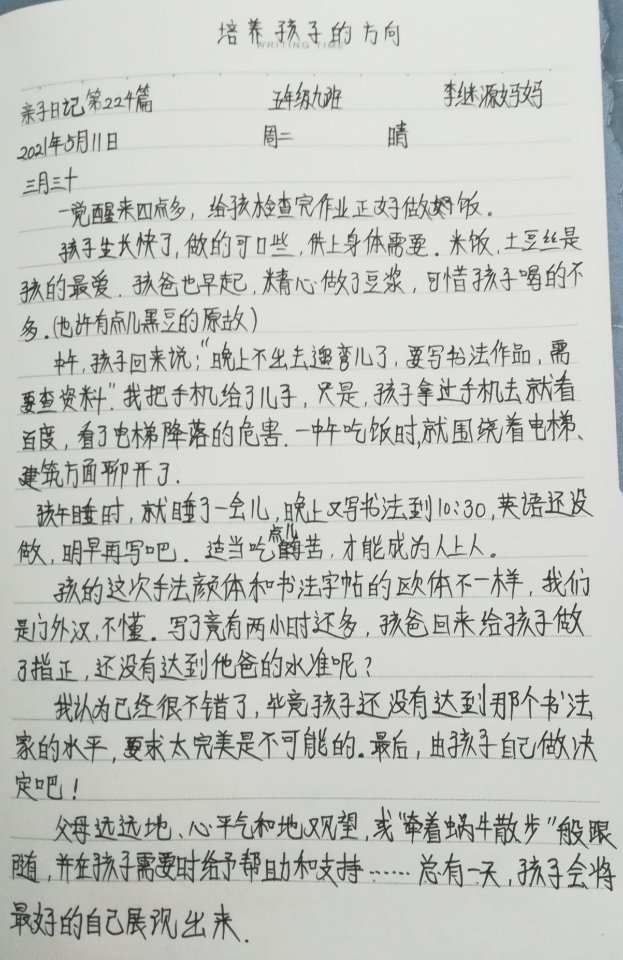 培养孩子的方向
WRITING TIME
亲子日记第224篇 五年级九班 李继源妈妈
2021年5月11日 周二 晴
三月三十
一觉醒来四点多，给孩检查完作业正好做饭。
孩子生长快了，做的可口些，供上身体需要。米饭，土豆丝是
孩的最爱．孩爸也早起，精心做了豆浆，可惜孩子喝的不
多．(也许有点儿黑豆的原故)
中午，孩子回来说："晚上不出去遛弯儿了，要写书法作品，需
要查资料"．我把手机给了儿子，只是，孩子拿过手机去就看
百度，看了电梯降落的危害．一中午吃饭时，就围绕着电梯、
建筑方面聊开了．
孩午睡时，就睡了一会儿，晚上又写书法到10:30，英语还没
做，明早再写吧．适当吃点儿苦，才能成为人上人。
孩的这次手法颜体和书法字帖的欧体不一样，我们
是门外汉，不懂。写了竟有两小时还多，孩爸回来给孩子做
了指正，还没有达到他爸的水准呢？
我认为已经很不错了，毕竟孩子还没有达到那个书法
家的水平，要求太完美是不可能的．最后，由孩子自己做决
定吧！
父母远远地、心平气和地观望，或"牵着蜗牛散步"般跟
随，并在孩子需要时给予帮助和支持……总有一天，孩子会将
最好的自己展现出来．